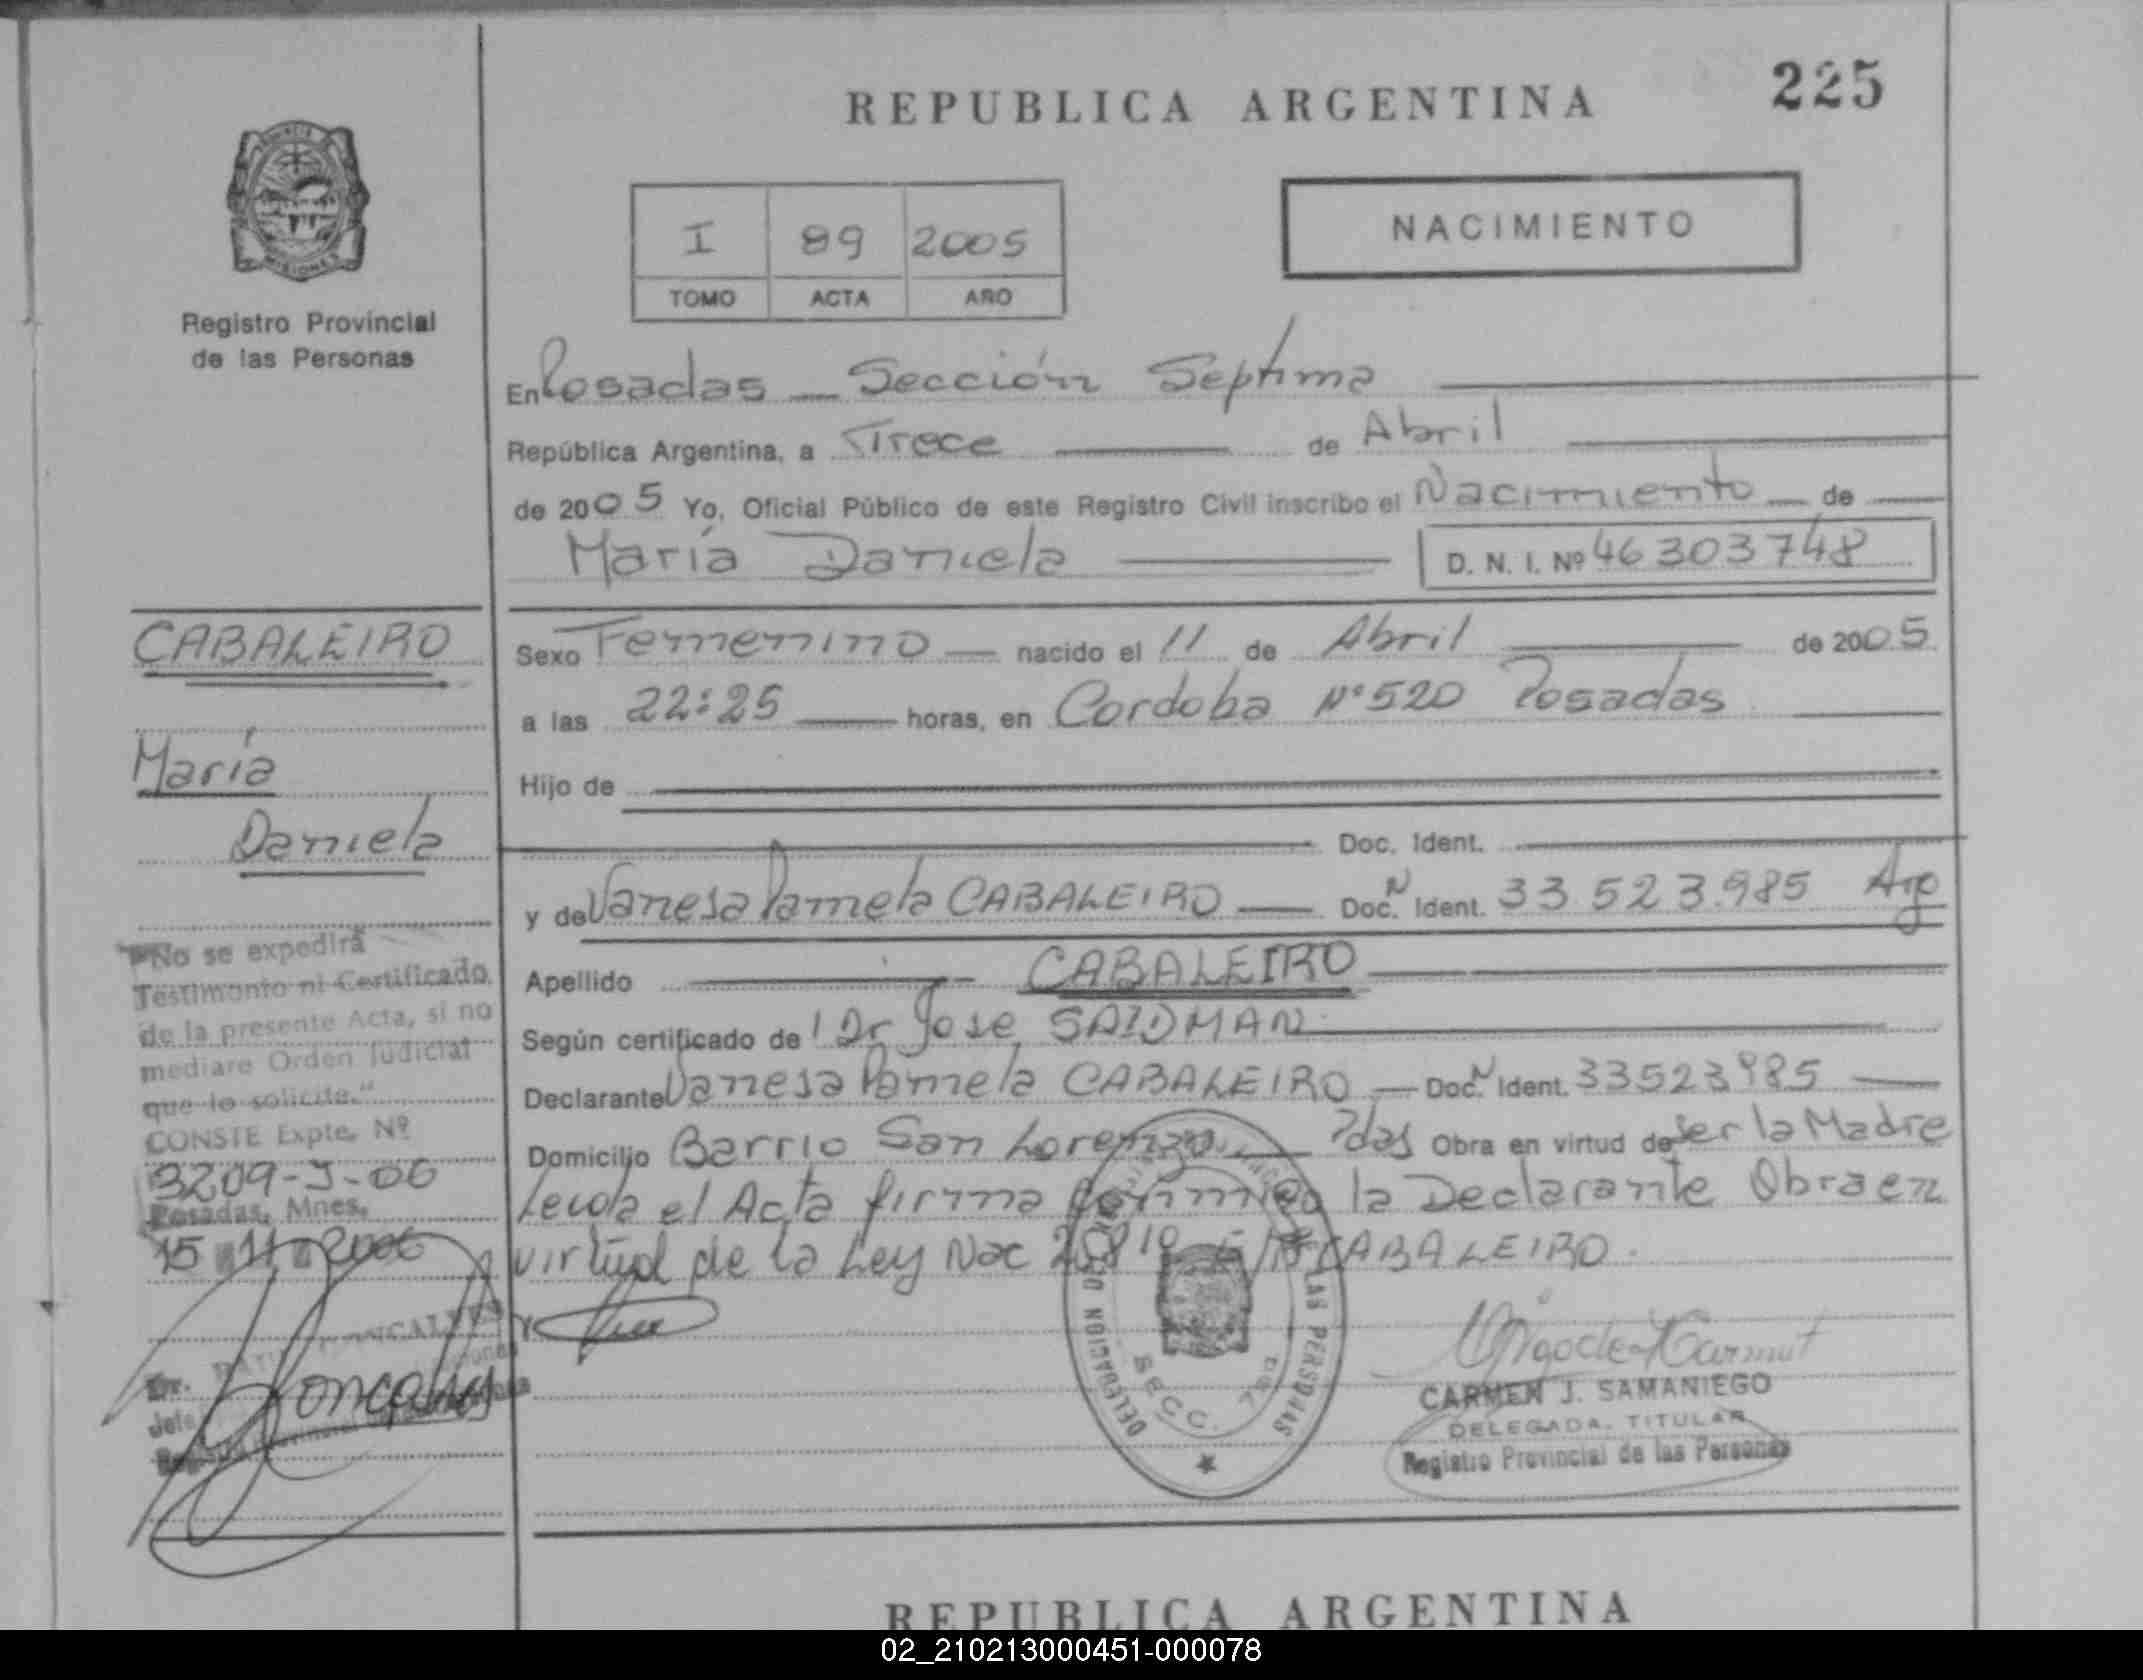 REPUBLICA ARGENTINA
225
MISIONES
Registro Provincial
de las Personas
I 89 2005
TOMO ACTA AÑO
NACIMIENTO
En Posadas — Sección Septima
República Argentina, a Trece de Abril
de 2005 Yo, Oficial Público de este Registro Civil inscribo el Nacimiento de
María Daniela
D. N. I. Nº 46303748
CABALEIRO
María
Daniela
Sexo Femenino nacido el 11 de Abril de 2005
a las 22:25 horas, en Cordoba Nº 520 Posadas
Hijo de
Doc. Ident.
y de Vanesa Pamela CABALEIRO Doc. N Ident. 33 523.985 Arg
Apellido CABALEIRO
Según certificado de Dr Jose SAIDMAN
Declarante Vanesa Pamela CABALEIRO Doc. N Ident. 33523985
Domicilio Barrio San Lorenzo Pdas Obra en virtud de Ser la Madre
Leida el Acta firma conmigo la Declarante Obra en
virtud de la Ley Nac CABALEIRO.
"No se expedirá
Testimonio ni Certificado
de la presente Acta, si no
mediare Orden Judicial
que lo solicite."
CONSTE Expte. Nº
3209-J-06
Posadas, Mnes,
15 11 2006
DELEGACION LAS PERSONAS
SECC. 7
CARMEN J. SAMANIEGO
DELEGADA TITULAR
Registro Provincial de las Personas
REPUBLICA ARGENTINA
02_210213000451-000078